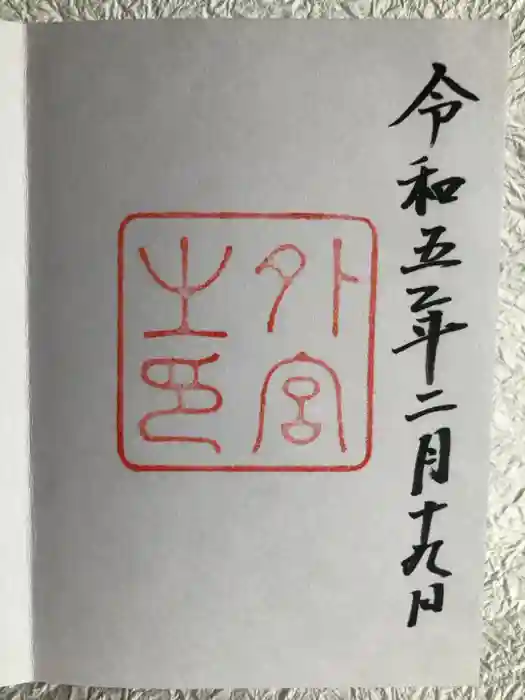 令和五年二月十九日
外宮
之印